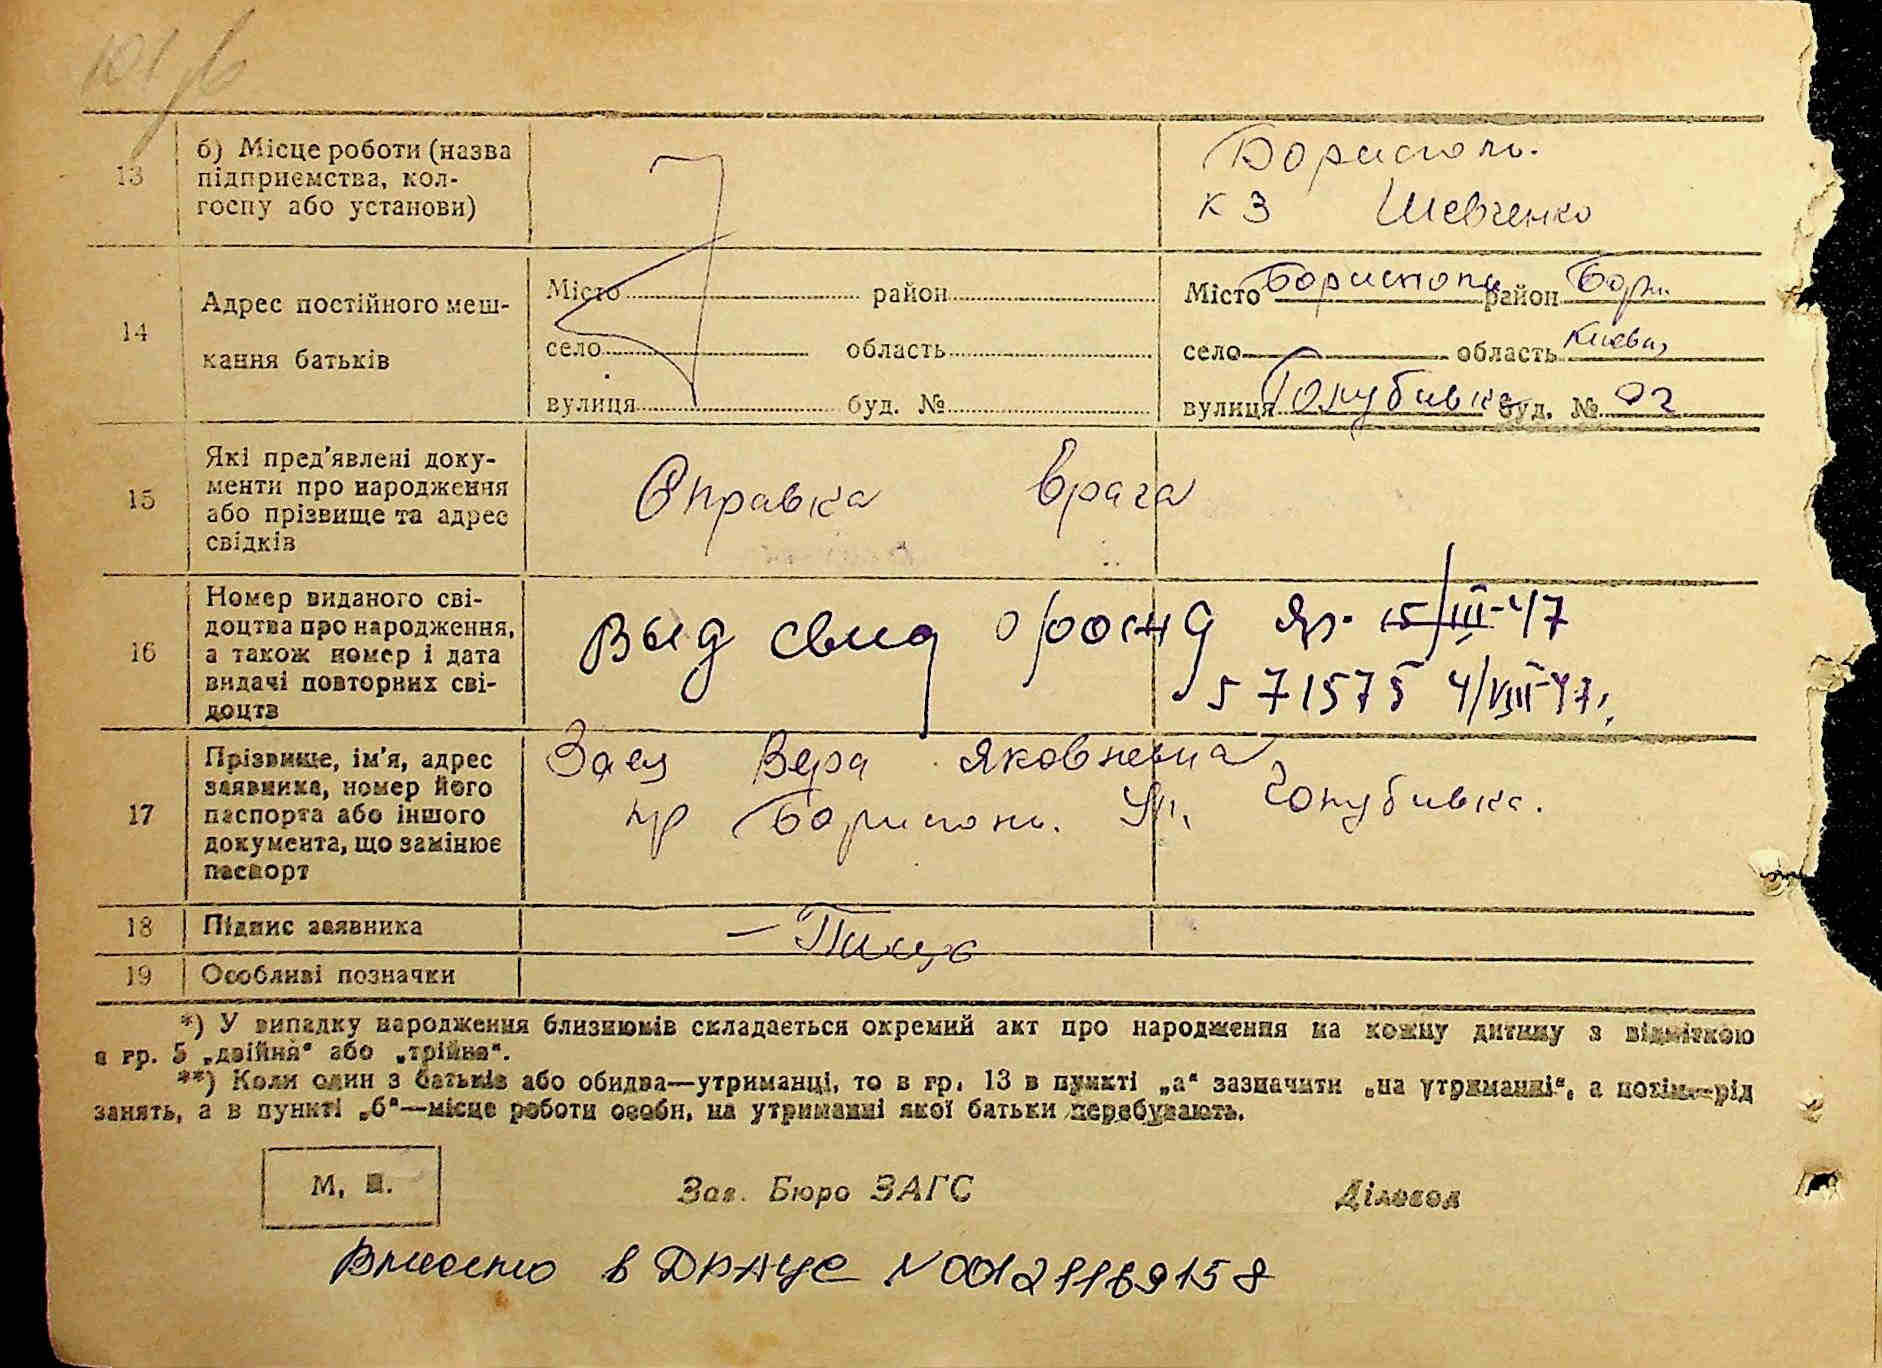 101
13
б) Місце роботи (назва
підприємства, кол-
госпу або установи)
Борисполь.
к З Шевченко
14
Адрес постійного меш-
кання батьків
Місто район
село область
вулиця буд. №
Місто Борисполь район Бори.
село — область Киевь,
вулиця Голубивка буд. №
15
Які пред'явлені доку-
менти про народження
або прізвище та адрес
свідків
Справка врача
16
Номер виданого сві-
доцтва про народження,
а також номер і дата
видачі повторних сві-
доцтв
Выд свид о рожд 15/III-47
571575 4/VIII-47.
17
Прізвище, ім'я, адрес
заявника, номер його
паспорта або іншого
документа, що замінює
паспорт
Заец Вера Яковлевна
пр Борисполь. Ул, Голубивка.
18
Підпис заявника
19
Особливі позначки
*) У випадку народження близнюмів складається окремий акт про народження на кожну дитину з відміткою
в гр. 5 „двійня“ або „трійня“.
**) Коли один з батьків або обидва—утриманці, то в гр. 13 в пункті „а“ зазначити „на утриманні“, а потім—рід
занять, а в пункті „б“—місце роботи особи, на утриманні якої батьки перебувають.
М. П.
Зав. Бюро ЗАГС
Діловод
Внесено в ДРАЦС N 00121189158